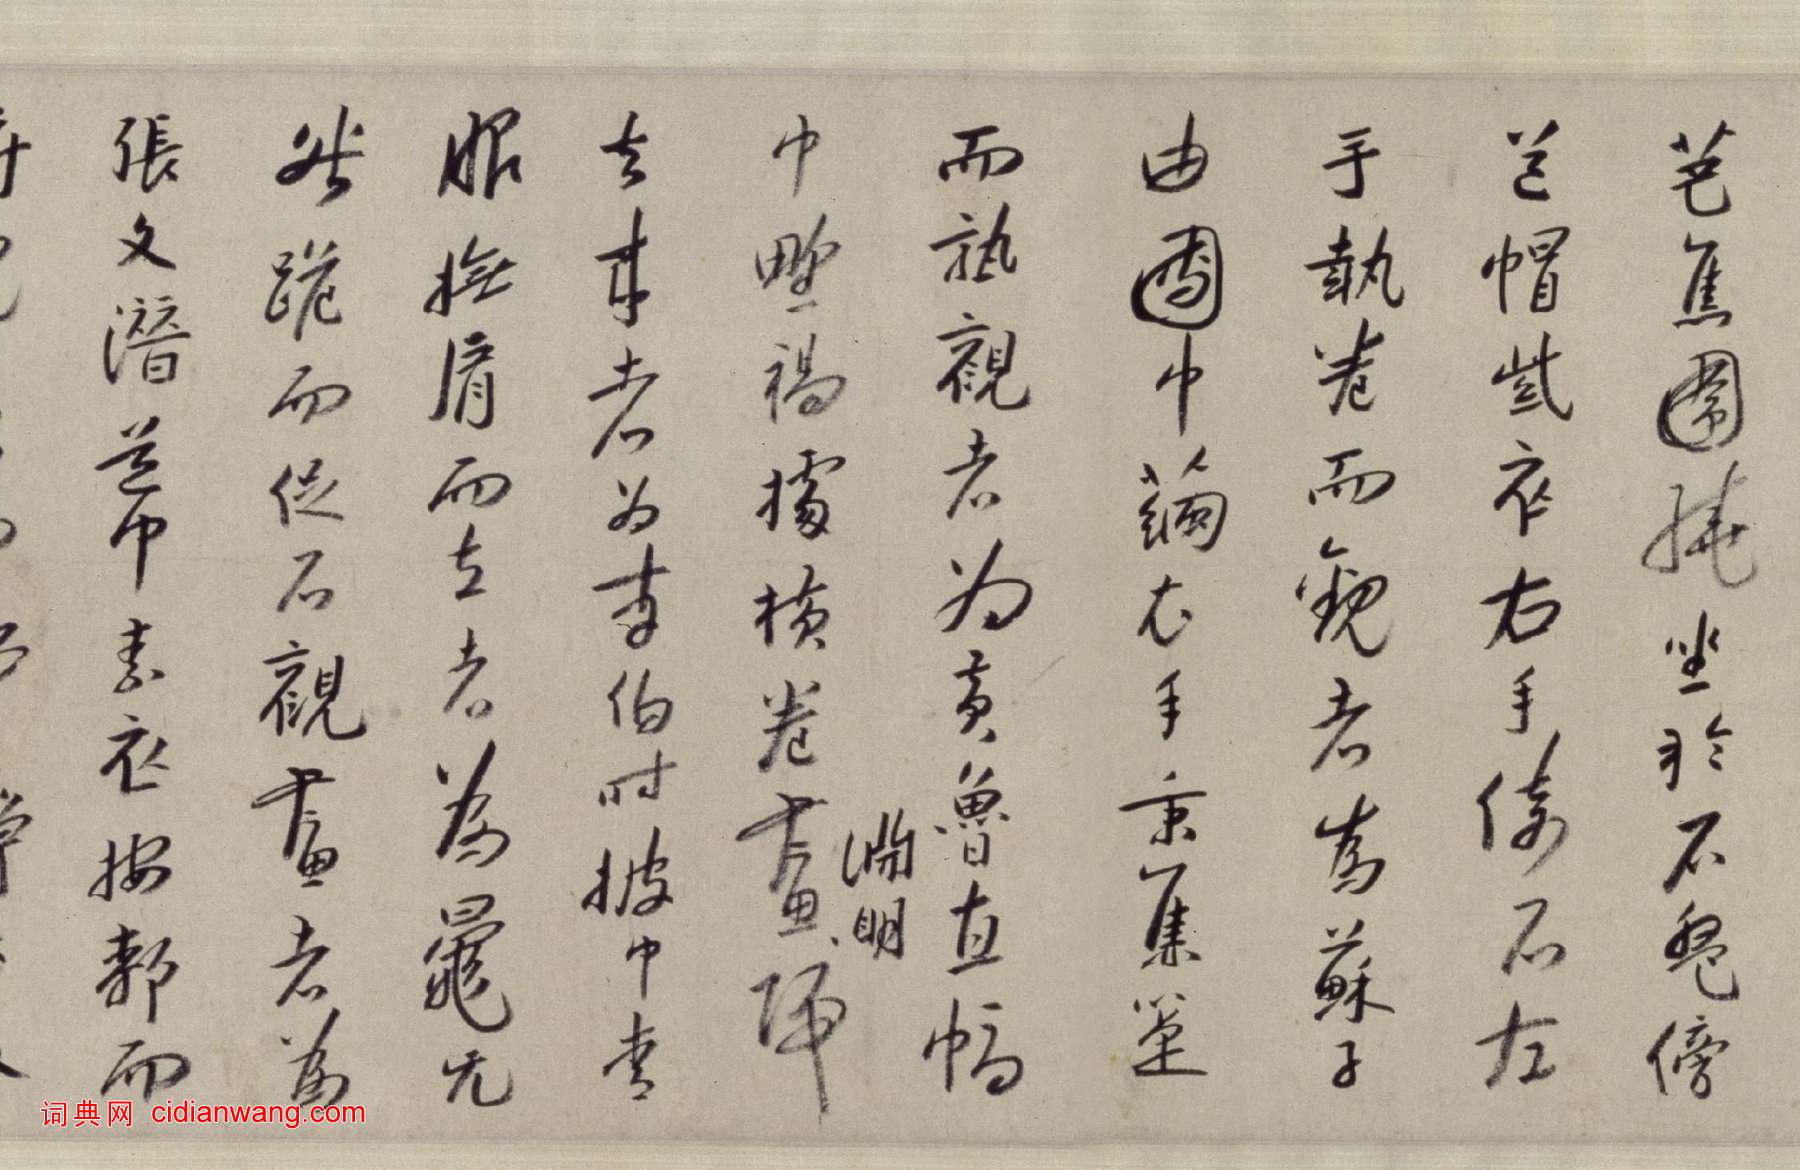 芭蕉圍繞坐於石盤傍
道帽紫衣右手倚石左
手執卷而觀書者為蘇子
由團巾繭衣手秉蕉箑
而熟觀者為黃魯直幅
巾野褐據橫卷畫歸
淵明
去來者為李伯時披巾青
服撫肩而立者為晁无
咎跪而促石觀畫者為
張文潛道巾素衣按郄而
词典网 cidianwang.com